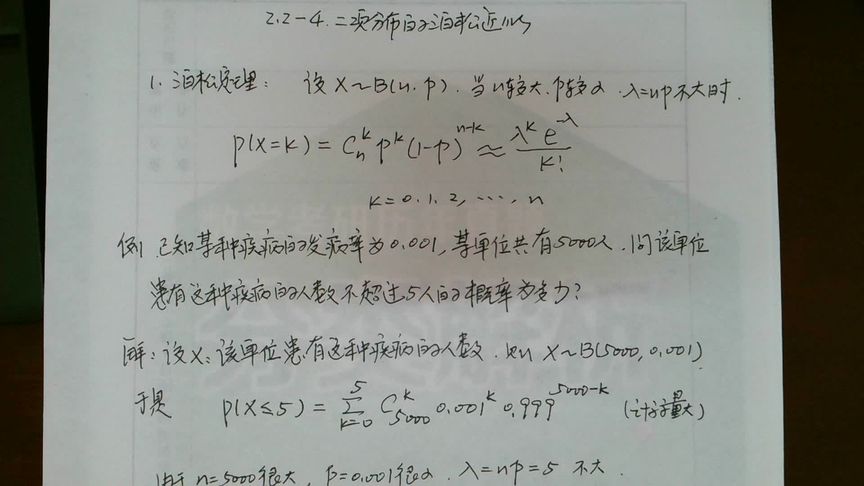 2.2-4.二项分布的泊松近似
1.泊松定理: 设X~B(n.p).当n较大.p较小.λ=np不大时.
P(X=k)=C_n^k p^k(1-p)^{n-k}≈λ^k e^{-λ}/k!
k=0.1.2,…,n
例1 已知某种疾病的发病率为0.001,某单位共有5000人.问该单位
患有这种疾病的人数不超过5人的概率为多少?
解:设X:该单位患有这种疾病的人数.则X~B(5000,0.001)
于是 P(X≤5)=∑_{k=0}^{5} C_{5000}^k 0.001^k 0.999^{5000-k} (计算量大)
由于n=5000很大,p=0.001很小.λ=np=5 不大.